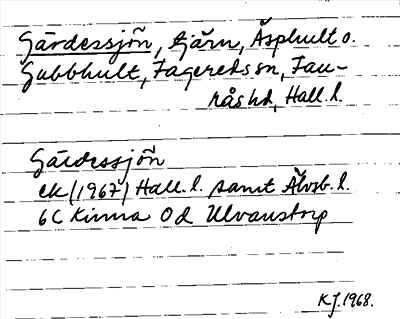 Gärdessjön, tjärn, Äsphult o.
Gubbhult, Fagereds sn, Fau-
rås hd, Hall. l.
Gärdessjön
ek (1967) Hall. l. samt Älvsb. l.
6C Kinna 0d Ulvanstorp
K.J. 1968.